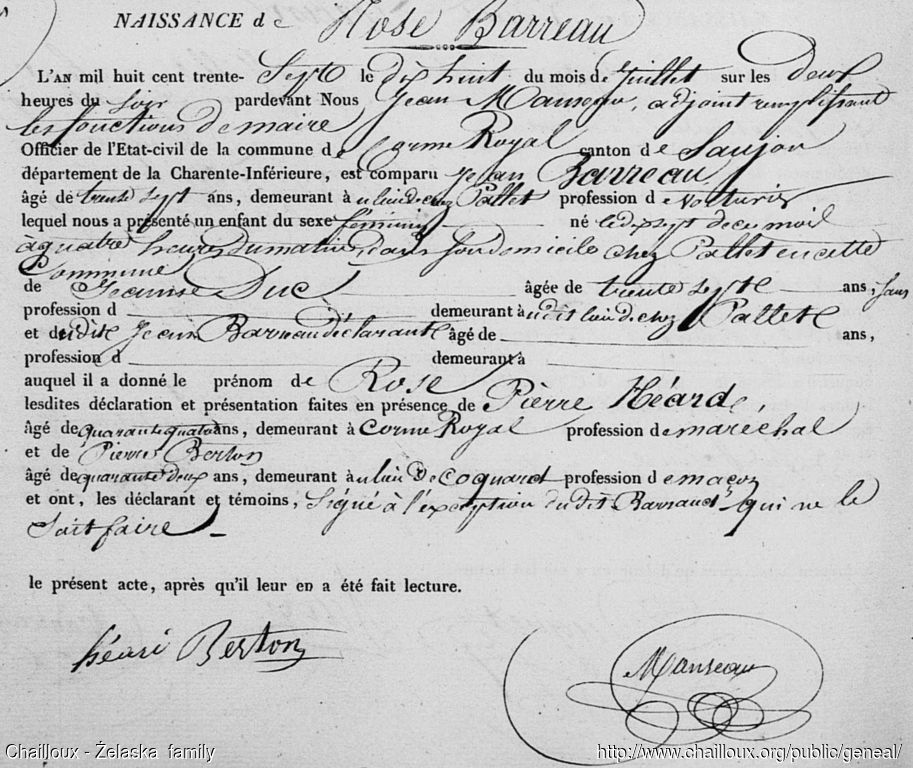 NAISSANCE de Rose Barreau
L'AN mil huit cent trente- Sept le dix huit du mois de Juillet sur les deux
heures du Soir pardevant Nous Jean Manseau, adjoint remplissant
les fonctions de maire
Officier de l'Etat-civil de la commune de Corme Royal canton de Saujon
département de la Charente-Inférieure, est comparu Jean Barreau
âgé de trente sept ans, demeurant au lieu de chez Pallet profession de Voiturier
lequel nous a présenté un enfant du sexe feminin né le dix sept de ce mois
a quatre heures du matin dans son domicile chez Pallet en cette
Commune
de Jeanne Duc âgée de trente Septe ans ; sans
profession d demeurant audit lieu de chez Pallet
et dudit Jean Barraud déclarant âgé de ans,
profession d demeurant à
auquel il a donné le prénom de Rose
lesdites déclaration et présentation faites en présence de Pierre Héard,
âgé de quarante quatre ans, demeurant à Corme Royal profession de maréchal
et de Pierre Berton
âgé de quarante deux ans, demeurant au lieu de Coquard profession de maçon
et ont, les déclarant et témoins, Signé à l'exception dudit Barraud qui ne le
Sait faire
le présent acte, après qu'il leur en a été fait lecture.
Berton
Manseau
Chailloux - Żelaska family
http://www.chailloux.org/public/geneal/